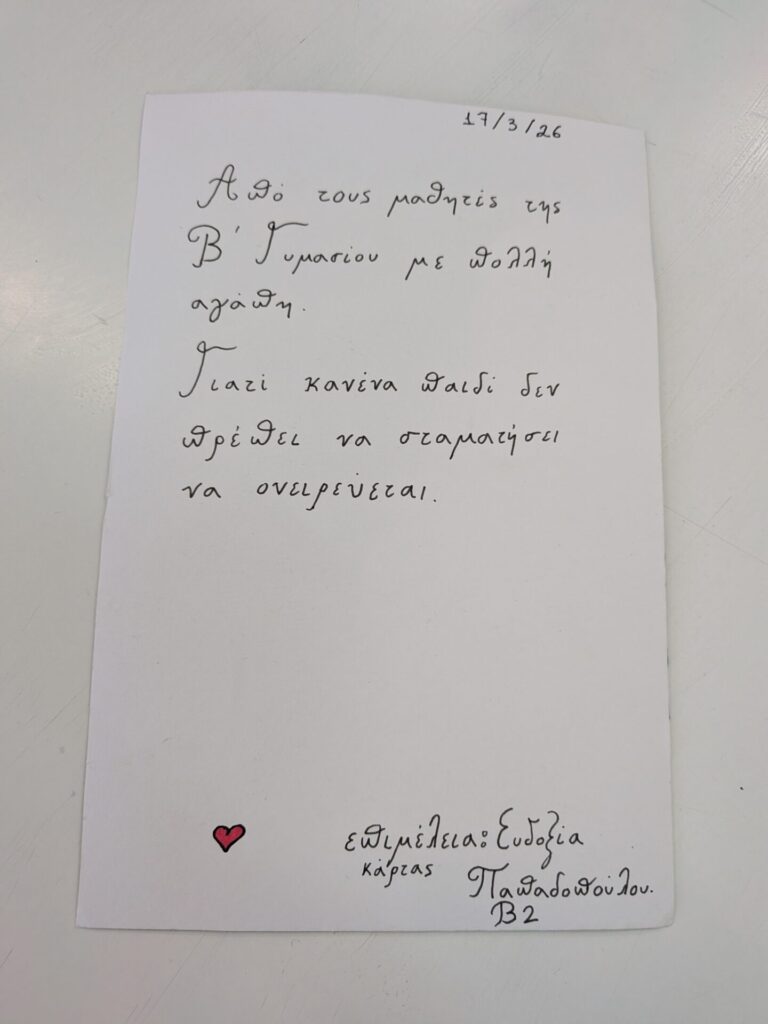 17/3/26
Από τους μαθητές της
Β' Γυμασίου με πολλή
αγάπη.
Γιατί κανένα παιδί δεν
πρέπει να σταματήσει
να ονειρεύεται.
επιμέλεια: Ευδοξία
κάρτας Παπαδοπούλου.
Β2